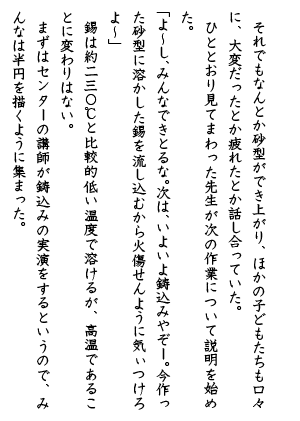 それでもなんとか砂型ができ上がり、ほかの子どもたちも口々
に、大変だったとか疲れたとか話し合っていた。
　ひととおり見てまわった先生が次の作業について説明を始め
た。
「よ〜し、みんなできとるな。次は、いよいよ鋳込みやぞー。今作っ
た砂型に溶かした錫を流し込むから火傷せんように気ぃつけろ
よ〜」
　錫は約二三〇℃と比較的低い温度で溶けるが、高温であるこ
とに変わりはない。
　まずはセンターの講師が鋳込みの実演をするというので、み
んなは半円を描くように集まった。